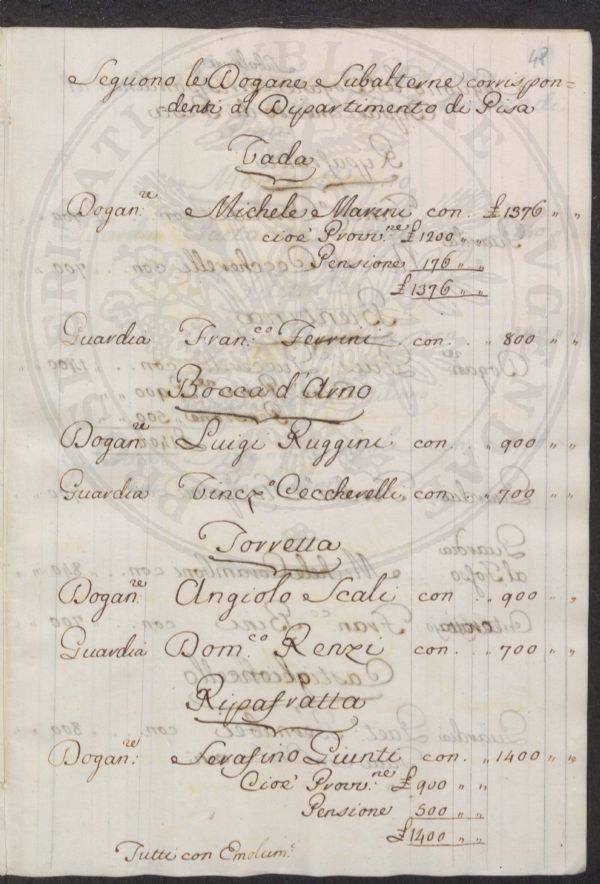 48
Seguono le Dogane Subalterne corrispon=
=denti al Dipartimento di Pisa
Vada
Dogan:re Michele Marini con. £ 1376 " "
cioè Provv:ne £ 1200 " "
Pensione 176 " "
£ 1376 " "
Guardia Fran:co Ferrini con. " 800 " "
Bocca d'Arno
Dogan:re Luigi Ruggini con. " 900 " "
Guardia Vincz:o Ceccherelli con. " 700 " "
Torretta
Dogan:re Angiolo Scali con " 900 " "
Guardia Dom:co Renzi con. " 700 " "
Ripafratta
Dogan:re Serafino Giunti con. " 1400 " "
Cioè Provv:ne £ 900 " "
Pensione 500 " "
£ 1400 " "
Tutti con Emolum:i